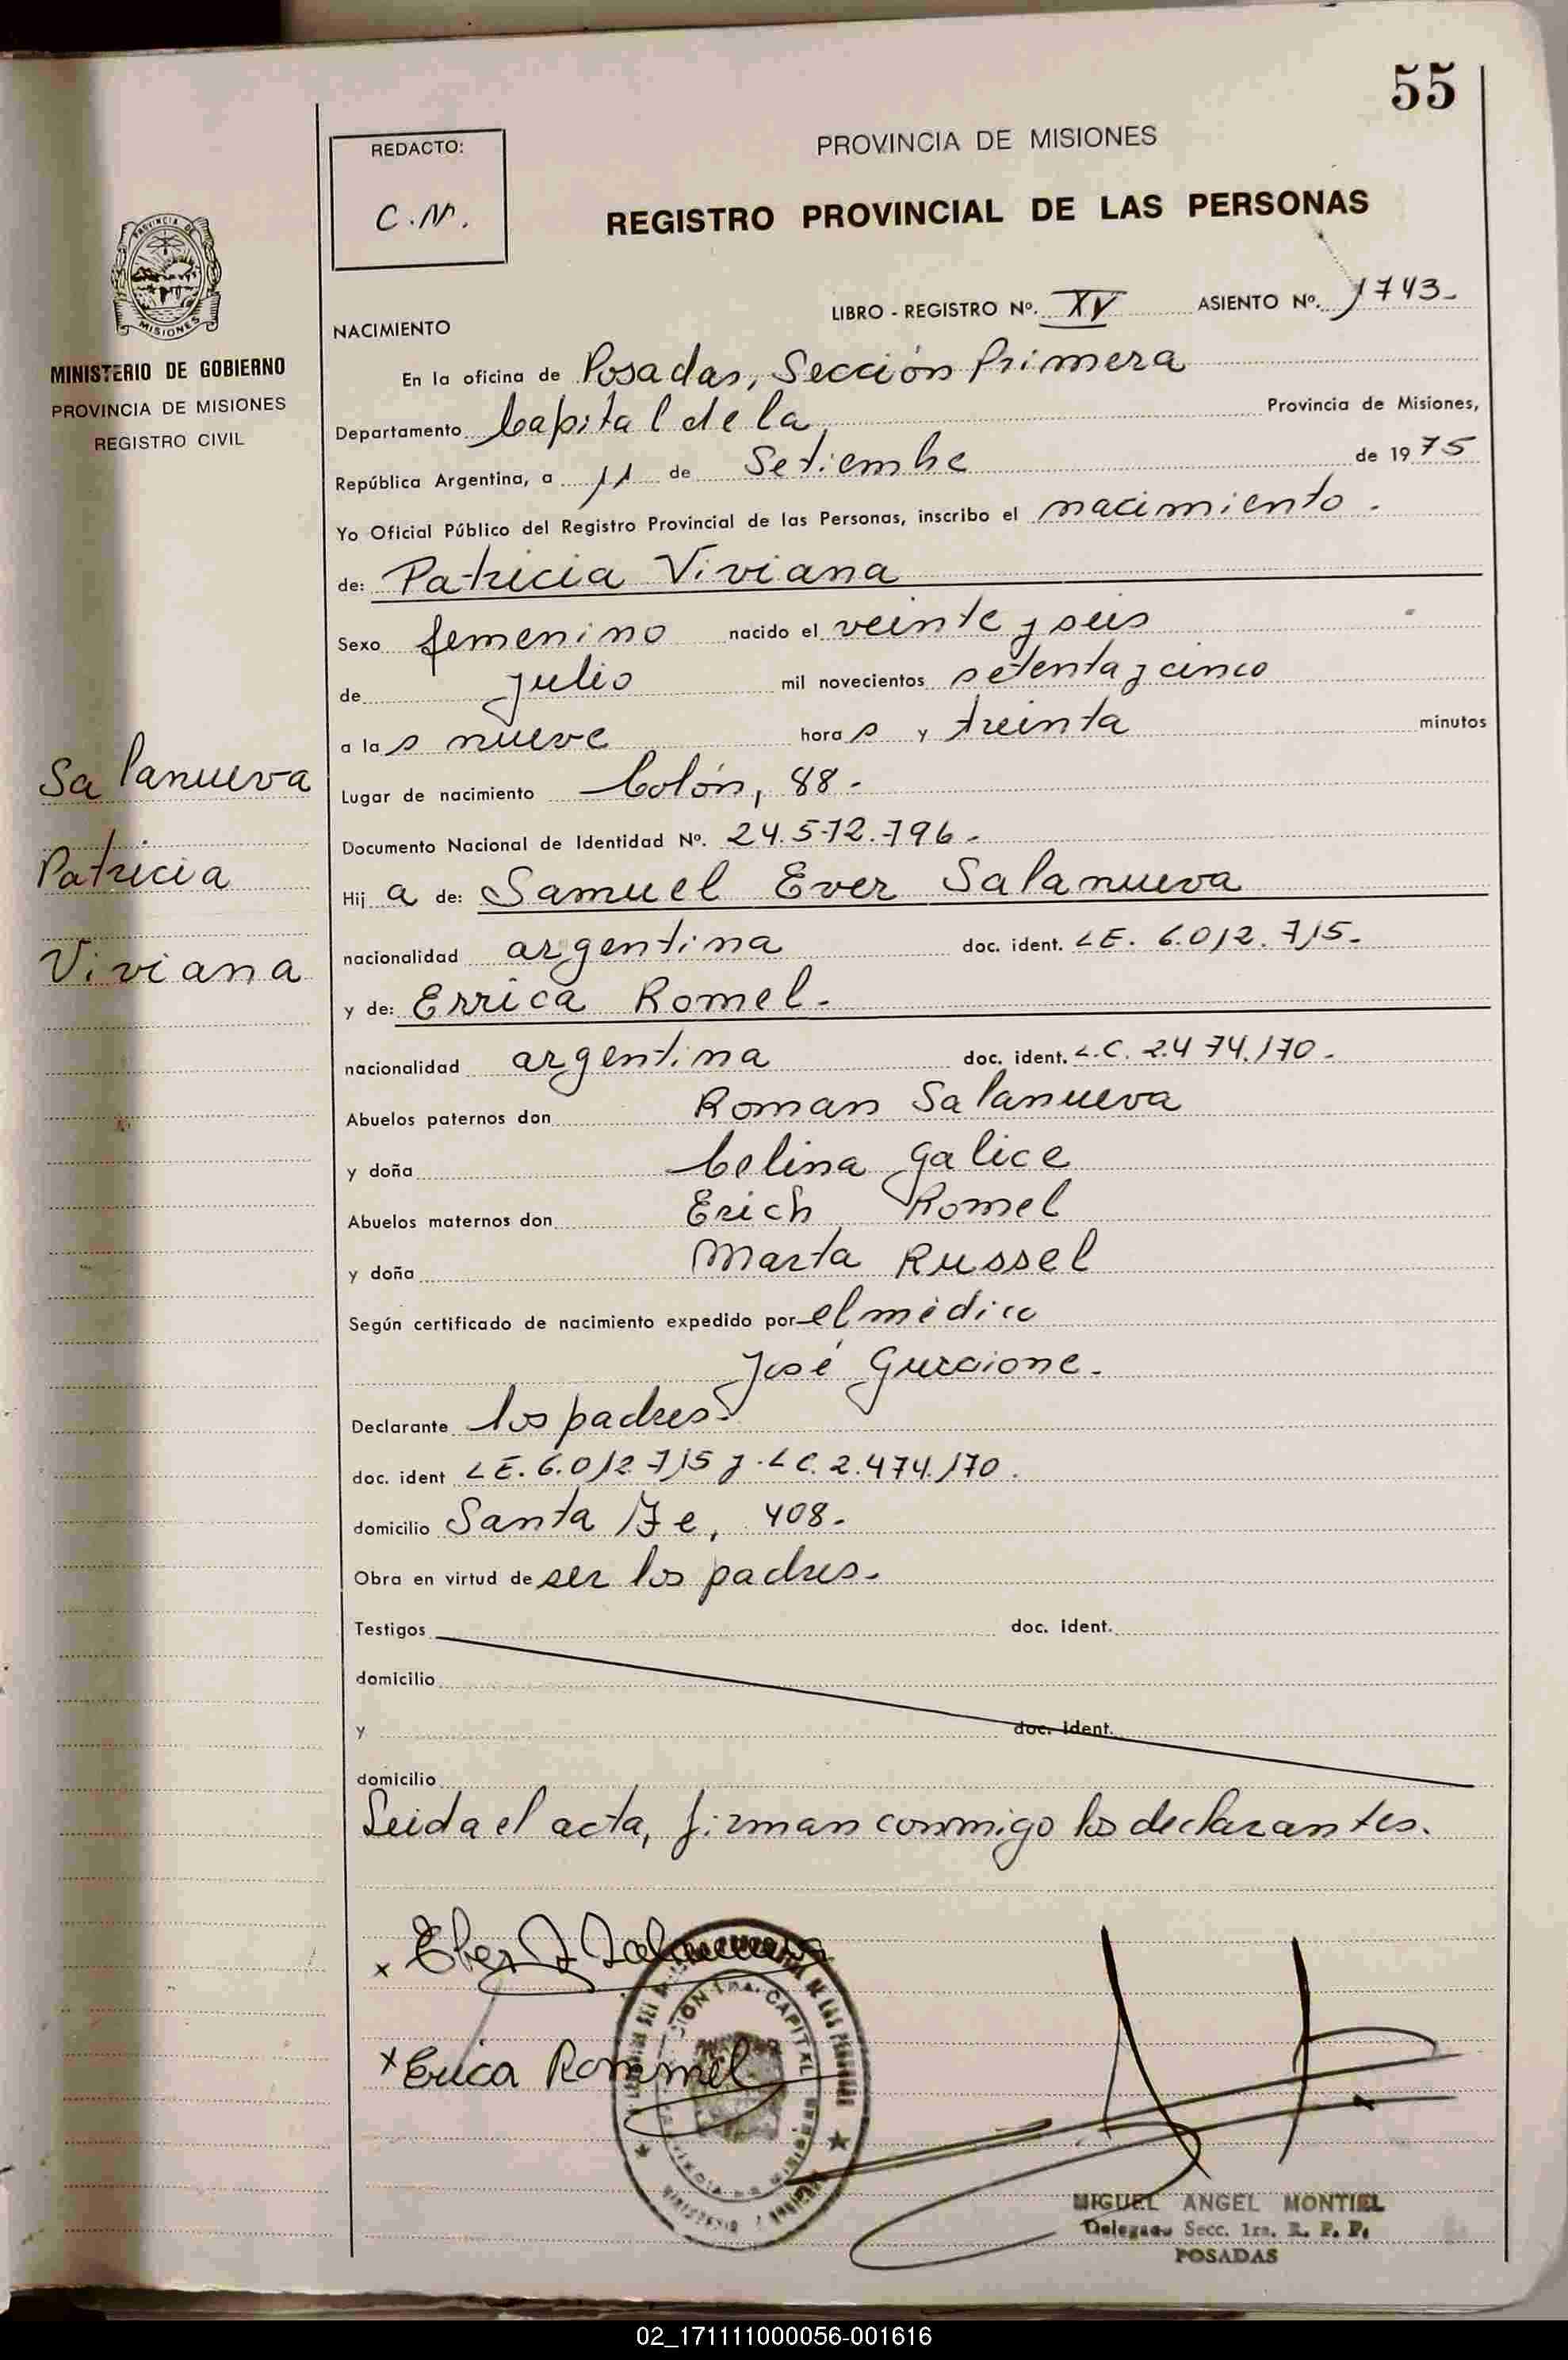 55
REDACTO:
C.N.
PROVINCIA DE MISIONES
REGISTRO PROVINCIAL DE LAS PERSONAS
PROVINCIA DE
MISIONES
MINISTERIO DE GOBIERNO
PROVINCIA DE MISIONES
REGISTRO CIVIL
LIBRO - REGISTRO Nº. XV ASIENTO Nº. 1743-
NACIMIENTO
En la oficina de Posadas, Sección Primera
Departamento Capital de la Provincia de Misiones,
República Argentina, a 11 de Setiembre de 1975
Yo Oficial Público del Registro Provincial de las Personas, inscribo el nacimiento.
de: Patricia Viviana
Sexo femenino nacido el veinte y seis
de julio mil novecientos setenta y cinco
a las nueve horas y treinta minutos
Salanueva
Patricia
Viviana
Lugar de nacimiento Colón, 88.-
Documento Nacional de Identidad Nº. 24.572.796.-
Hija de: Samuel Ever Salanueva
nacionalidad argentina doc. ident. LE. 6.012.715-
y de: Errica Romel.-
nacionalidad argentina doc. ident. L.C. 2.474.170-
Abuelos paternos don Roman Salanueva
y doña Celina Galice
Abuelos maternos don Erich Romel
y doña Marta Russel
Según certificado de nacimiento expedido por el médico
José Gurcione.
Declarante los padres.
doc. ident LE. 6.012.715 y LC. 2.474.170.
domicilio Santa Fe, 408.-
Obra en virtud de ser los padres.-
Testigos doc. Ident.
domicilio
y doc. Ident.
domicilio
Leida el acta, firman conmigo los declarantes.
x Eber J Salanueva
x Erica Rommel
MIGUEL ANGEL MONTIEL
Delegado Secc. 1ra. R. P. P.
POSADAS
02_171111000056-001616